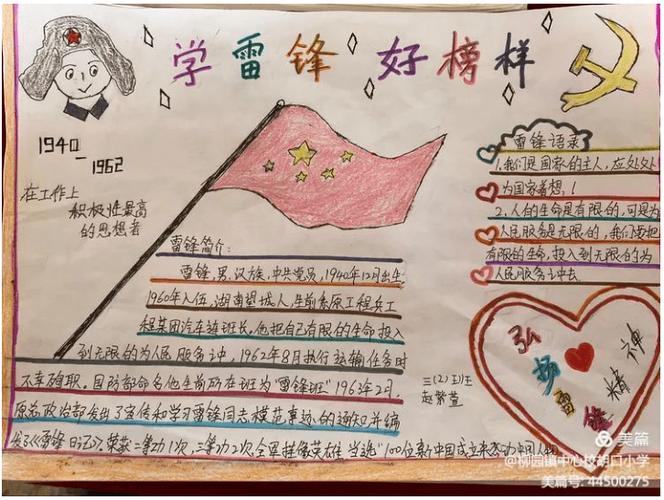 学雷锋 好榜样
1940-
1962
在工作上
积极性最高
的思想者
雷锋语录
1.我们是国家的主人，应处处
为国家着想。
2、人的生命是有限的，可是为
人民服务是无限的，我们要把
有限的生命，投入到无限的为
人民服务之中去
雷锋简介：
雷锋，男，汉族，中共党员，1940年12月出生
1960年入伍，湖南望城人，生前系原工程兵工
程某团汽车班班长，他把自己有限的生命投入
到无限的为人民服务之中，1962年8月执行运输任务时
不幸殉职。国防部命名他生前所在班为"雷锋班"1963年2月
原总政治部发出了宣传和学习雷锋同志模范事迹的通知并编
《雷锋日记》荣获二等功1次，三等功2次，全军挂像英雄 当选"100位新中国成立来感动中国人物
三(2)
赵紫萱
弘扬雷锋精神
美篇
@柳园镇中心校胡口小学
美篇号: 44500275